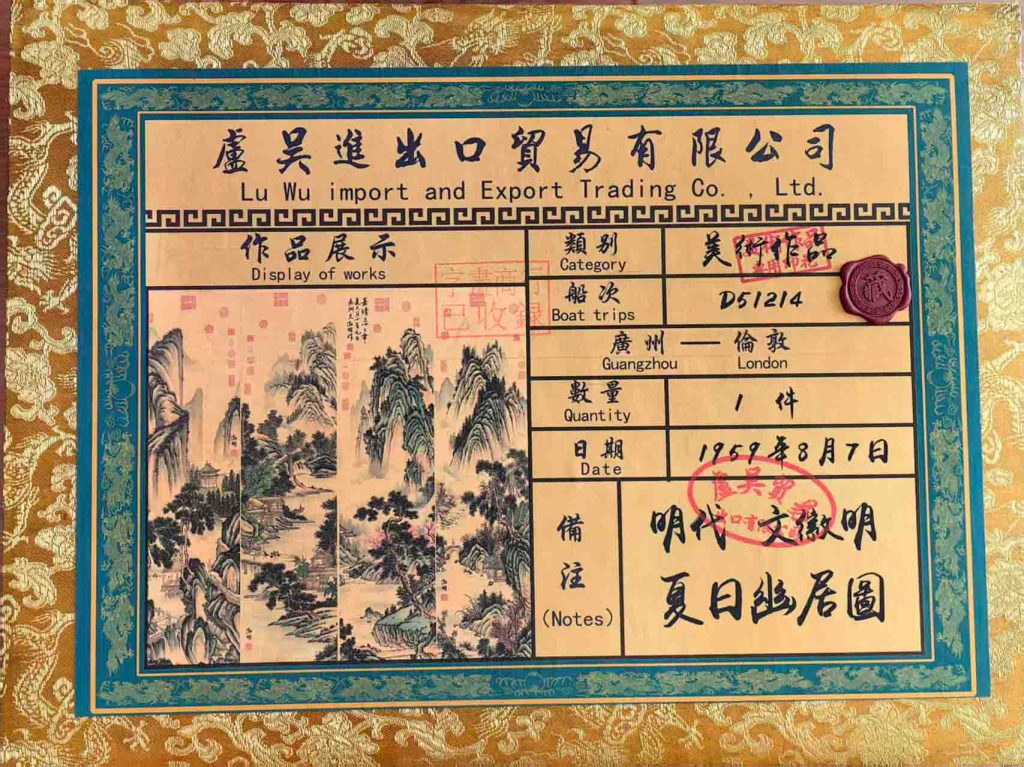 盧吴進出口貿易有限公司
Lu Wu import and Export Trading Co. , Ltd.
作品展示
Display of works
字畫商行
已收錄
類别
Category
美術作品
船次
Boat trips
D51214
藏
廣州 — 倫敦
Guangzhou London
數量
Quantity
1 件
日期
Date
1959年8月7日
盧吴貿易
備注
(Notes)
明代 文徵明
夏日幽居圖